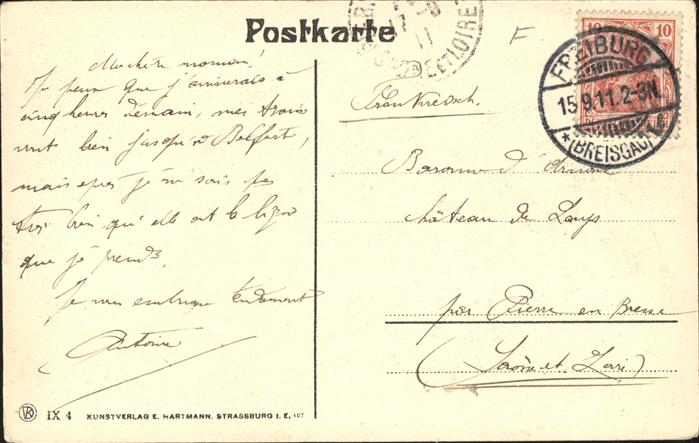 Postkarte
10 10
FREIBURG
15.9.11.2-3N.
*(BREISGAU)*
ET LOIRE
F
Ma chère maman!
Je pense que j'arriverais à
cinq heures demain, mes trains
vont bien jusqu'à Belfort,
mais après je ne sais pas
très bien qu'elle est la ligne
que je prends.
Je vous embrasse tendrement
Antoine
Frankreich.
Baronne d'
château de Lays
par Pierre en Bresse
(Saône et Loire)
IX 4 KUNSTVERLAG E. HARTMANN, STRASSBURG I. E.